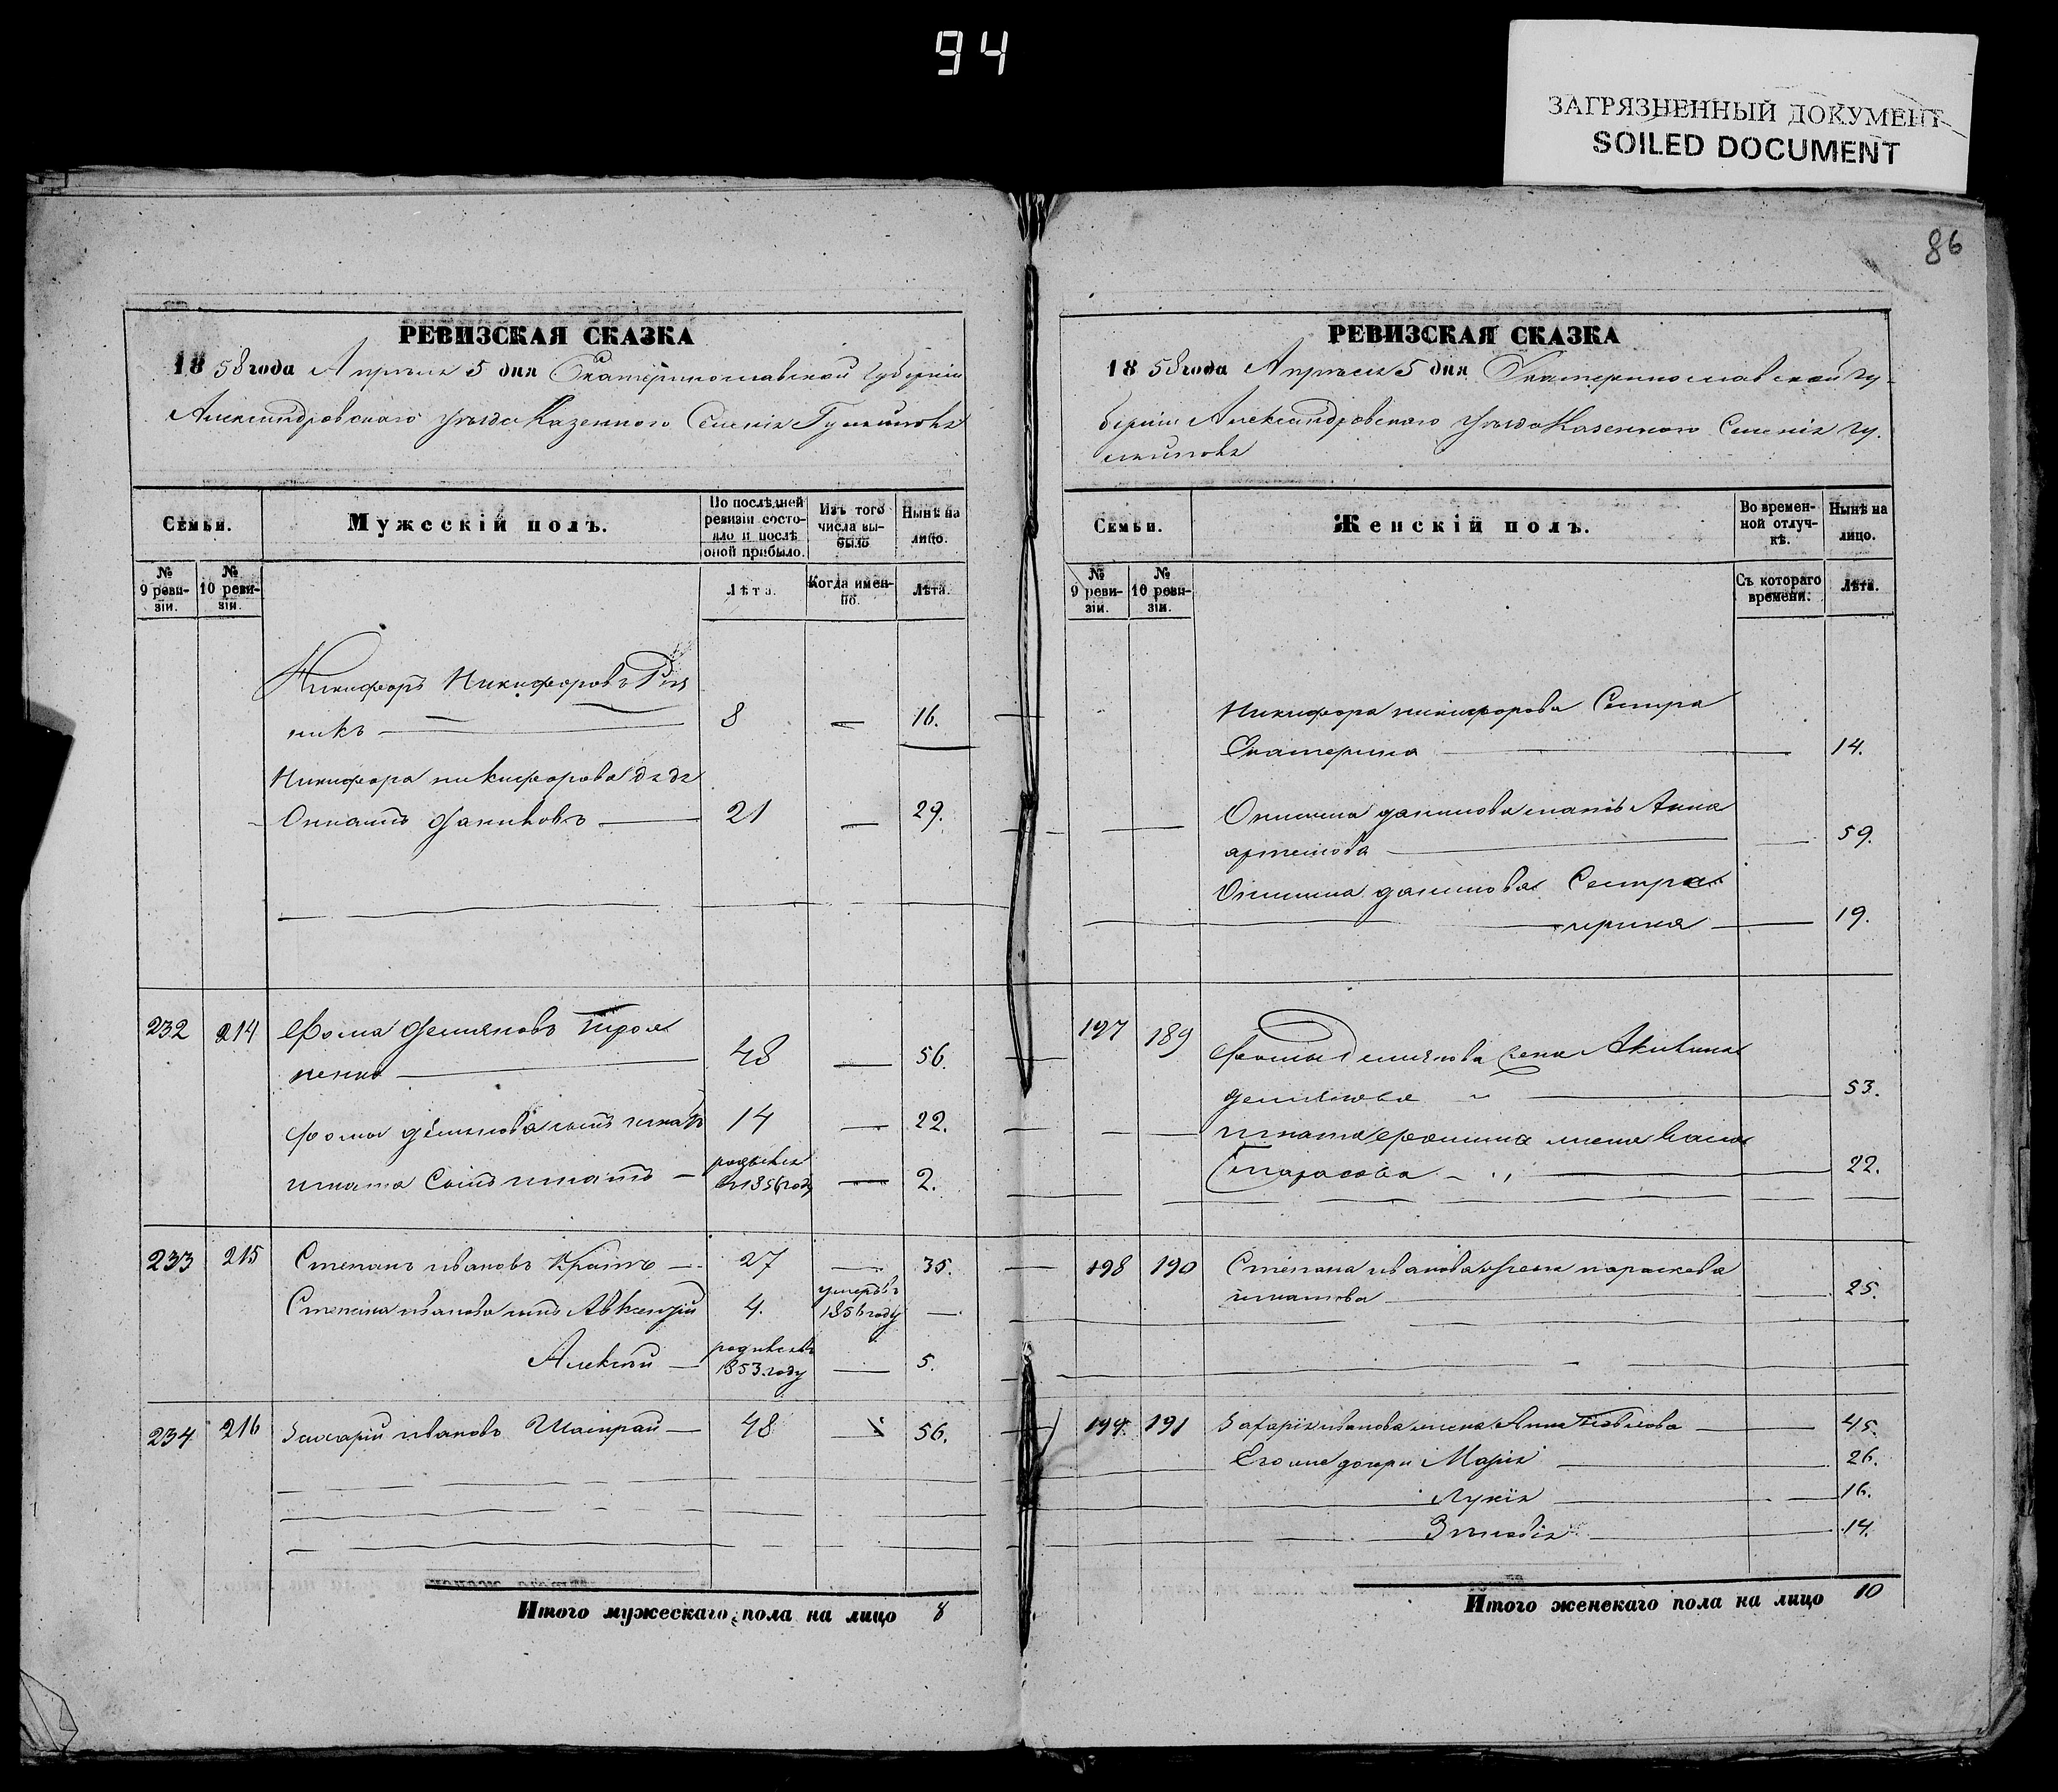 94
ЗАГРЯЗНЕННЫЙ ДОКУМЕНТ
SOILED DOCUMENT
РЕВИЗСКАЯ СКАЗКА
1858 года Апреля 5 дня Екатеринославской Губернiи
Александровскаго уезда Казенного Селенiя
Семьи.
Мужескій полъ.
По послѣдней ревизіи состояло и послѣ оной прибыло.
Изъ того числа выбыло
Нынѣ на лицо.
№ 9 ревизіи.
№ 10 ревизіи.
Лѣта.
Когда именно.
Лѣта.
Никифоръ Никифоровъ
никъ 8 — 16.
Никифора никифорова дядя
21 — 29.
232 214 Фома Демяновъ
ненко 48 — 56.
Фомы демянова сынъ игнатъ 14 — 22.
игната Сынъ игнатъ — родился в 1856 году — 2.
233 215 Степанъ ивановъ Кратъ — 27 — 35.
Степана иванова сынъ Авксентiй 4. умеръ в 1856 году —
Алексей — родился 1853 году — 5.
234 216 Захарiй ивановъ — 48 — 56.
Итого мужескаго пола на лицо 8
86
РЕВИЗСКАЯ СКАЗКА
1858 года Апреля 5 дня Екатеринославской гу-
бернiи Александровскаго уезда Казенного Селенiя
Семьи.
Женскій полъ.
Во временной отлучкѣ.
Нынѣ на лицо.
№ 9 ревизіи.
№ 10 ревизіи.
Съ котораго времени.
Лѣта.
Никифора никифорова Сестра
Екатерина — 14.
данилова мать Анна
артемова — 59.
данилова Сестра
ирина — 19.
197 189 Фомы Демянова жена Акилина
демянова — 53.
игната фомина жена
Тарасова — 22.
198 190 Степана иванова жена параскева
игнатова — 25.
199. 191 Захарiя иванова жена Анна Павлова — 45.
Его же дочери Марiя — 26.
Лукiя — 16.
Зиновiя — 14.
Итого женскаго пола на лицо 10